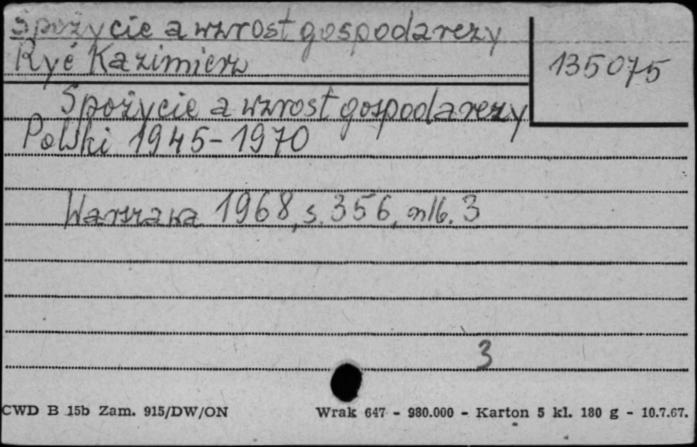 Spożycie a wzrost gospodarczy
Ryć Kazimierz
135075
Spożycie a wzrost gospodarczy
Polski 1945-1970
Warszawa 1968, s. 356, nlb. 3
3
CWD B 15b Zam. 915/DW/ON
Wrak 647 - 980.000 - Karton 5 kl. 180 g - 10.7.67.